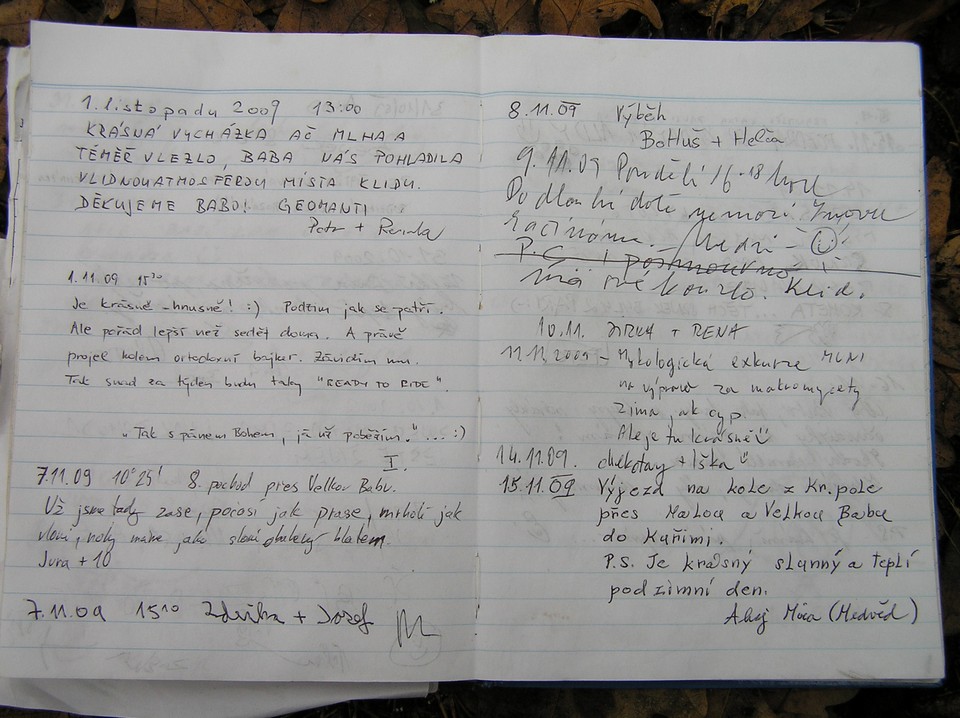 1. listopadu 2009 13:00
KRÁSNÁ VYCHÁZKA AČ MLHA A
TÉMĚŘ VLEZLO, BABA NÁS POHLADILA
VLIDNOU ATMOSFÉROU MÍSTA KLIDU.
DĚKUJEME BABO! GEOMANTI
Petr +
1.11.09 15³⁰
Je krásně - hnusně! :) Podzim jak se patří.
Ale pořád lepší než sedět doma. A právě
projel kolem ortodoxní bajker. Závidím mu.
Tak snad za týden budu taky "READY TO RIDE".
„Tak s pánem Bohem, já už poběžím." ... :)
I.
7.11.09 10°25' 8. pochod přes Velkou Babu.
Už jsme tady zase, počasí jak prase, mrholí jak
vloni, nohy máme jako sloni obaleny blatem.
Jura + 10
7.11.09 15¹⁰ Zdeňka + Jozef
8.11.09 Výběh
BoHuš + Helča
9.11.09 Pondělí 16-18 hod
Po dlouhé době
má své kouzlo. Klid.
10.11. JIRKA + RENA
11.11.2009 - Mykologická exkurze
na výpravě za makromycety
Zima jak cyp.
Ale je tu krásně
14.11.09. + Iška
15.11.09 Výjezd na kole z Kr. pole
přes Malou a Velkou Babu
do Kuřimi.
P.S. Je krásný slunný a teplí
podzimní den.
Ahoj Míra (Medvěd)